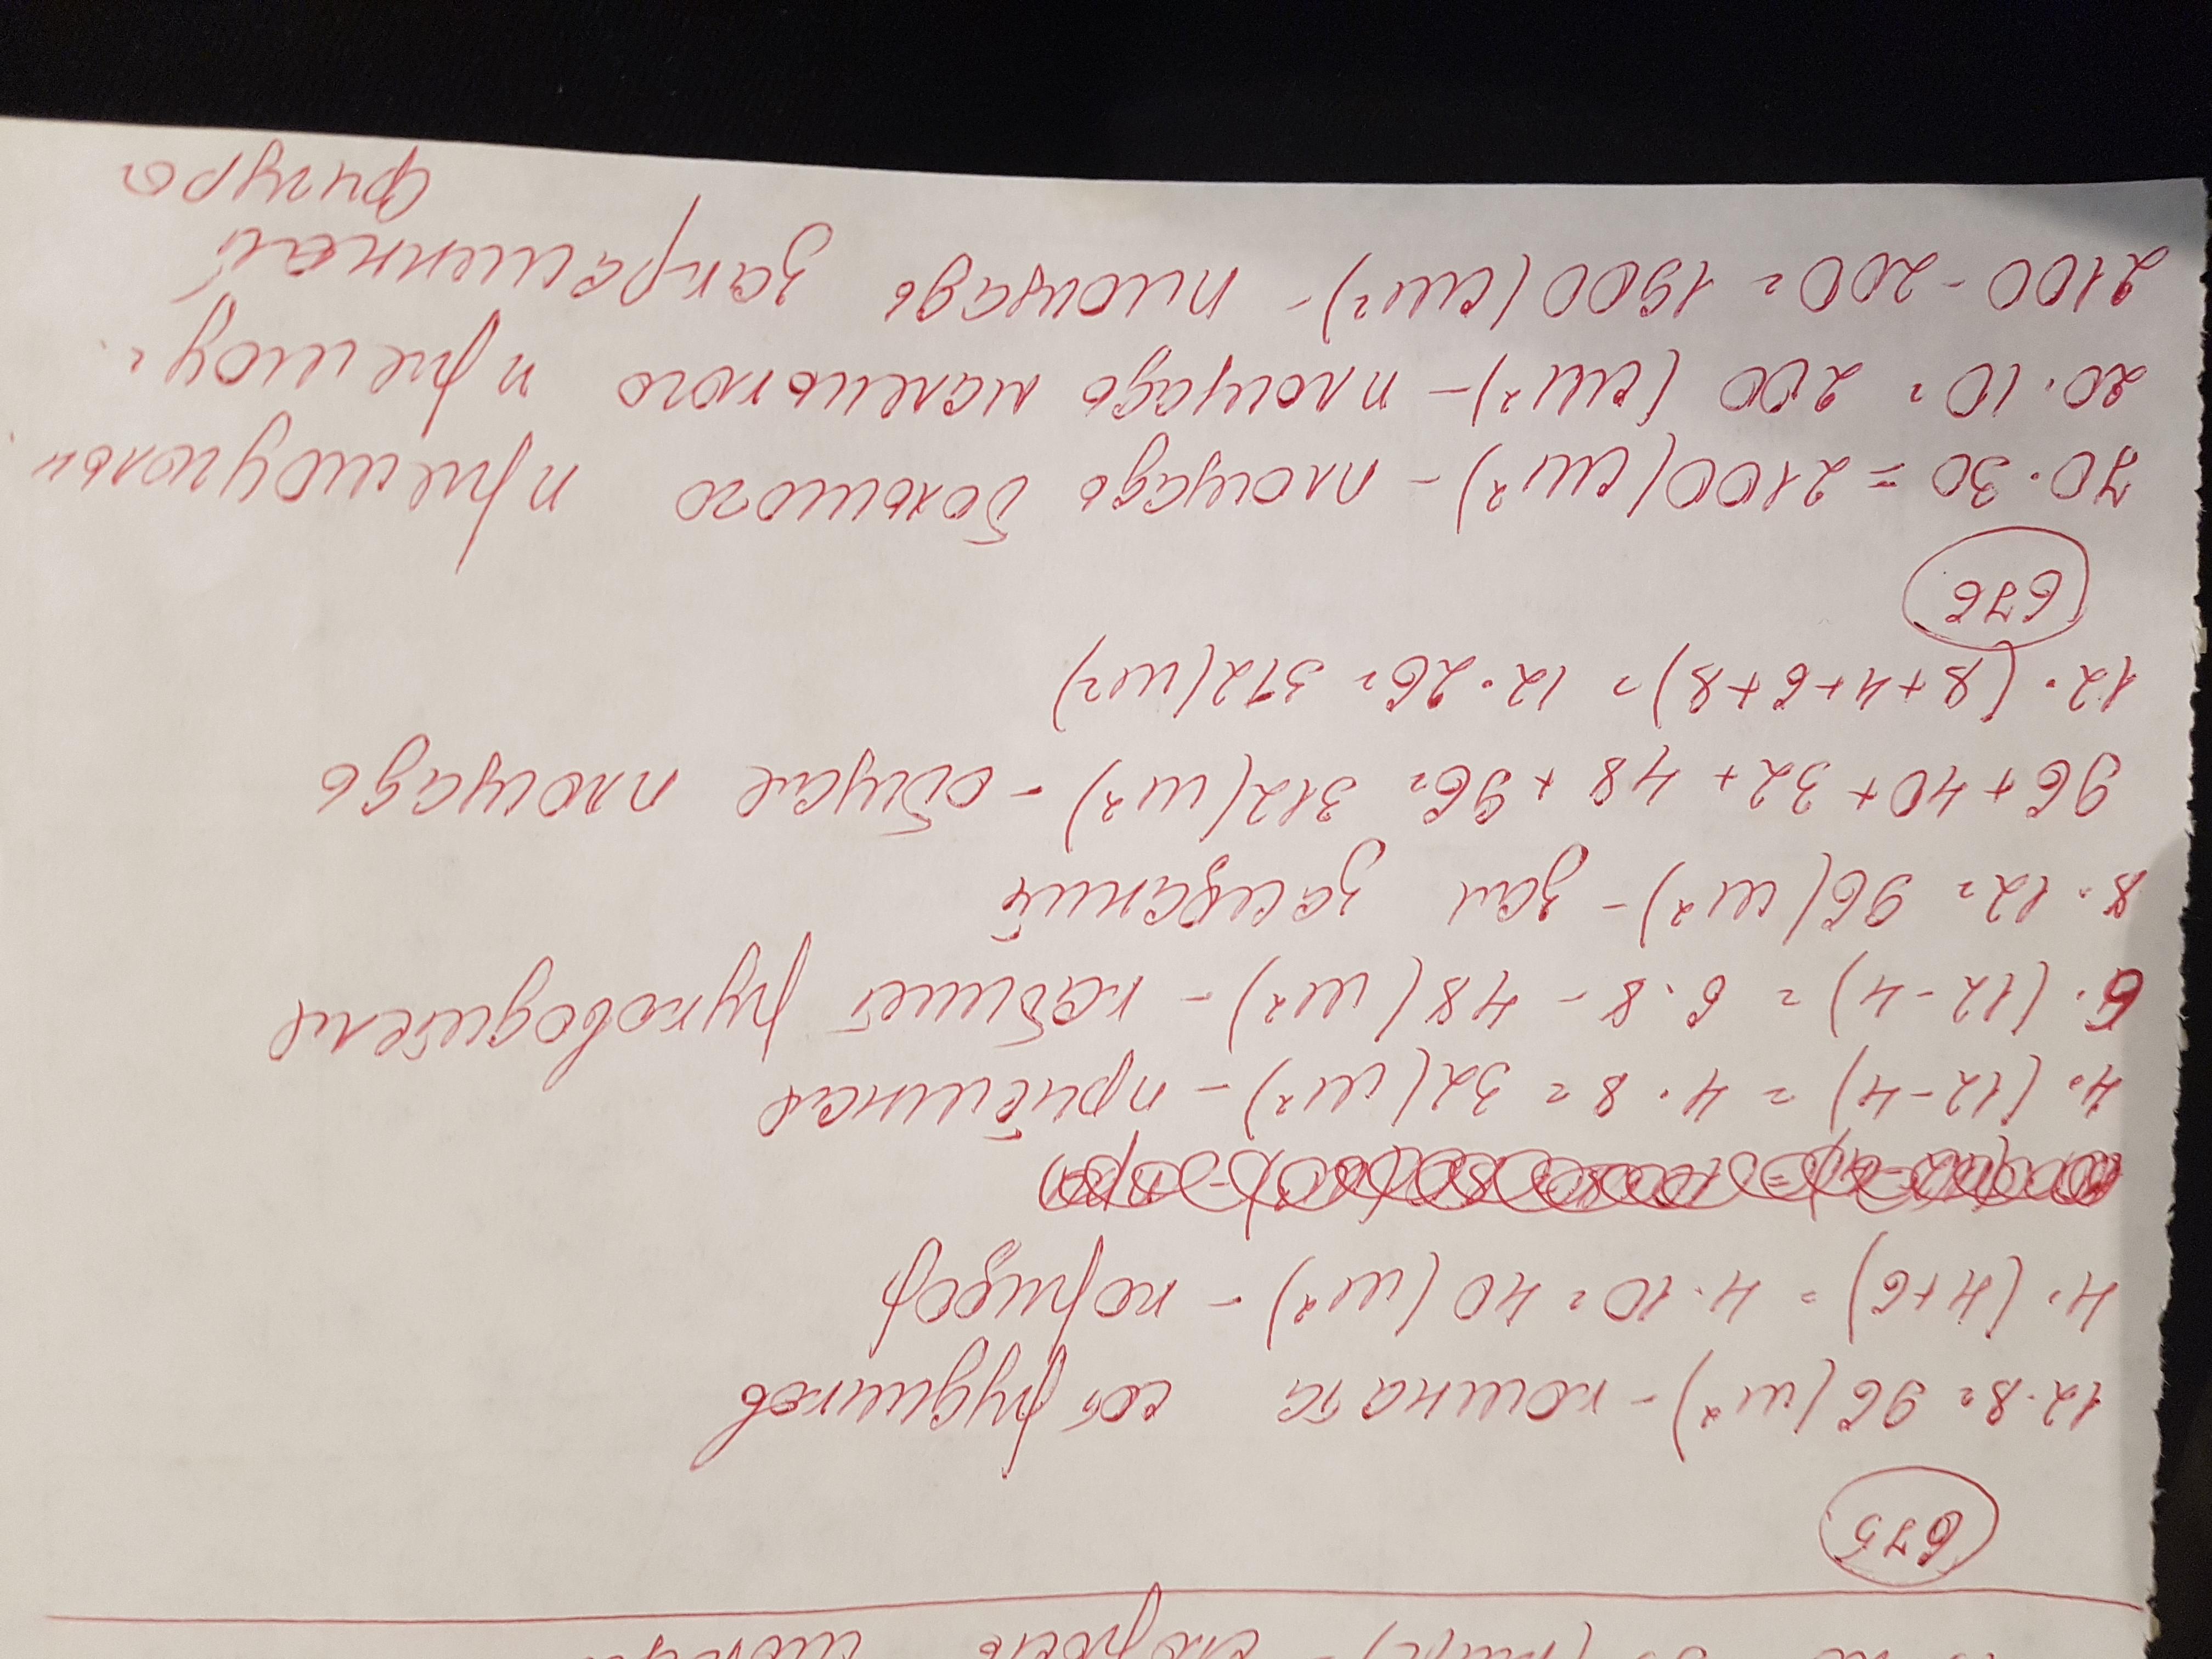 скорость
675
12·8=96(м²)- комната сотрудников
4·(4+6)=4·10=40(м²)- коридор
4·(12-4)=4·8=32(м²)- приёмная
6·(12-4)=6·8-48(м²)- кабинет руководителя
8·12=96(м²)- зал заседаний
96+40+32+48+96=312(м²)- общая площадь
12·(8+4+6+8)=12·26=312(м²)
676
70·30=2100(см²)- площадь большого прямоугольн
20·10=200(см²)- площадь маленького прямоу.
2100-200=1900(см²)- площадь закрашенной
фигуры